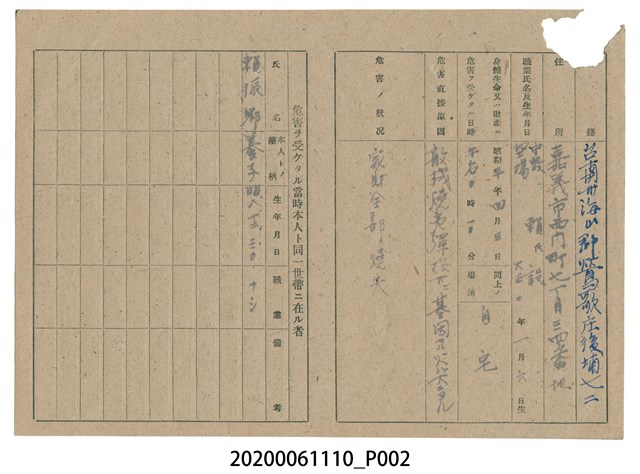 籍 台南州海山郡鶯歌庄後埔七二
住所 嘉義市西門町七丁目三四番地
職業氏名及生年月日 賴氏 年一月六日生
身體生命又ハ財產ニ危害ヲ受ケタル日時 昭和 年四月三日 同上ノ 午 時 分 場所 自宅
危害直接原因 敵機燒夷彈投下ニ基因スル火災ニヨル
危害ノ狀況 家財全部燒失
危害ヲ受ケタル當時本人ト同一世帶ニ在ル者
氏名 本人トノ續柄 生年月日 職業 備考
賴振 養子 昭 ナシ
20200061110_P002